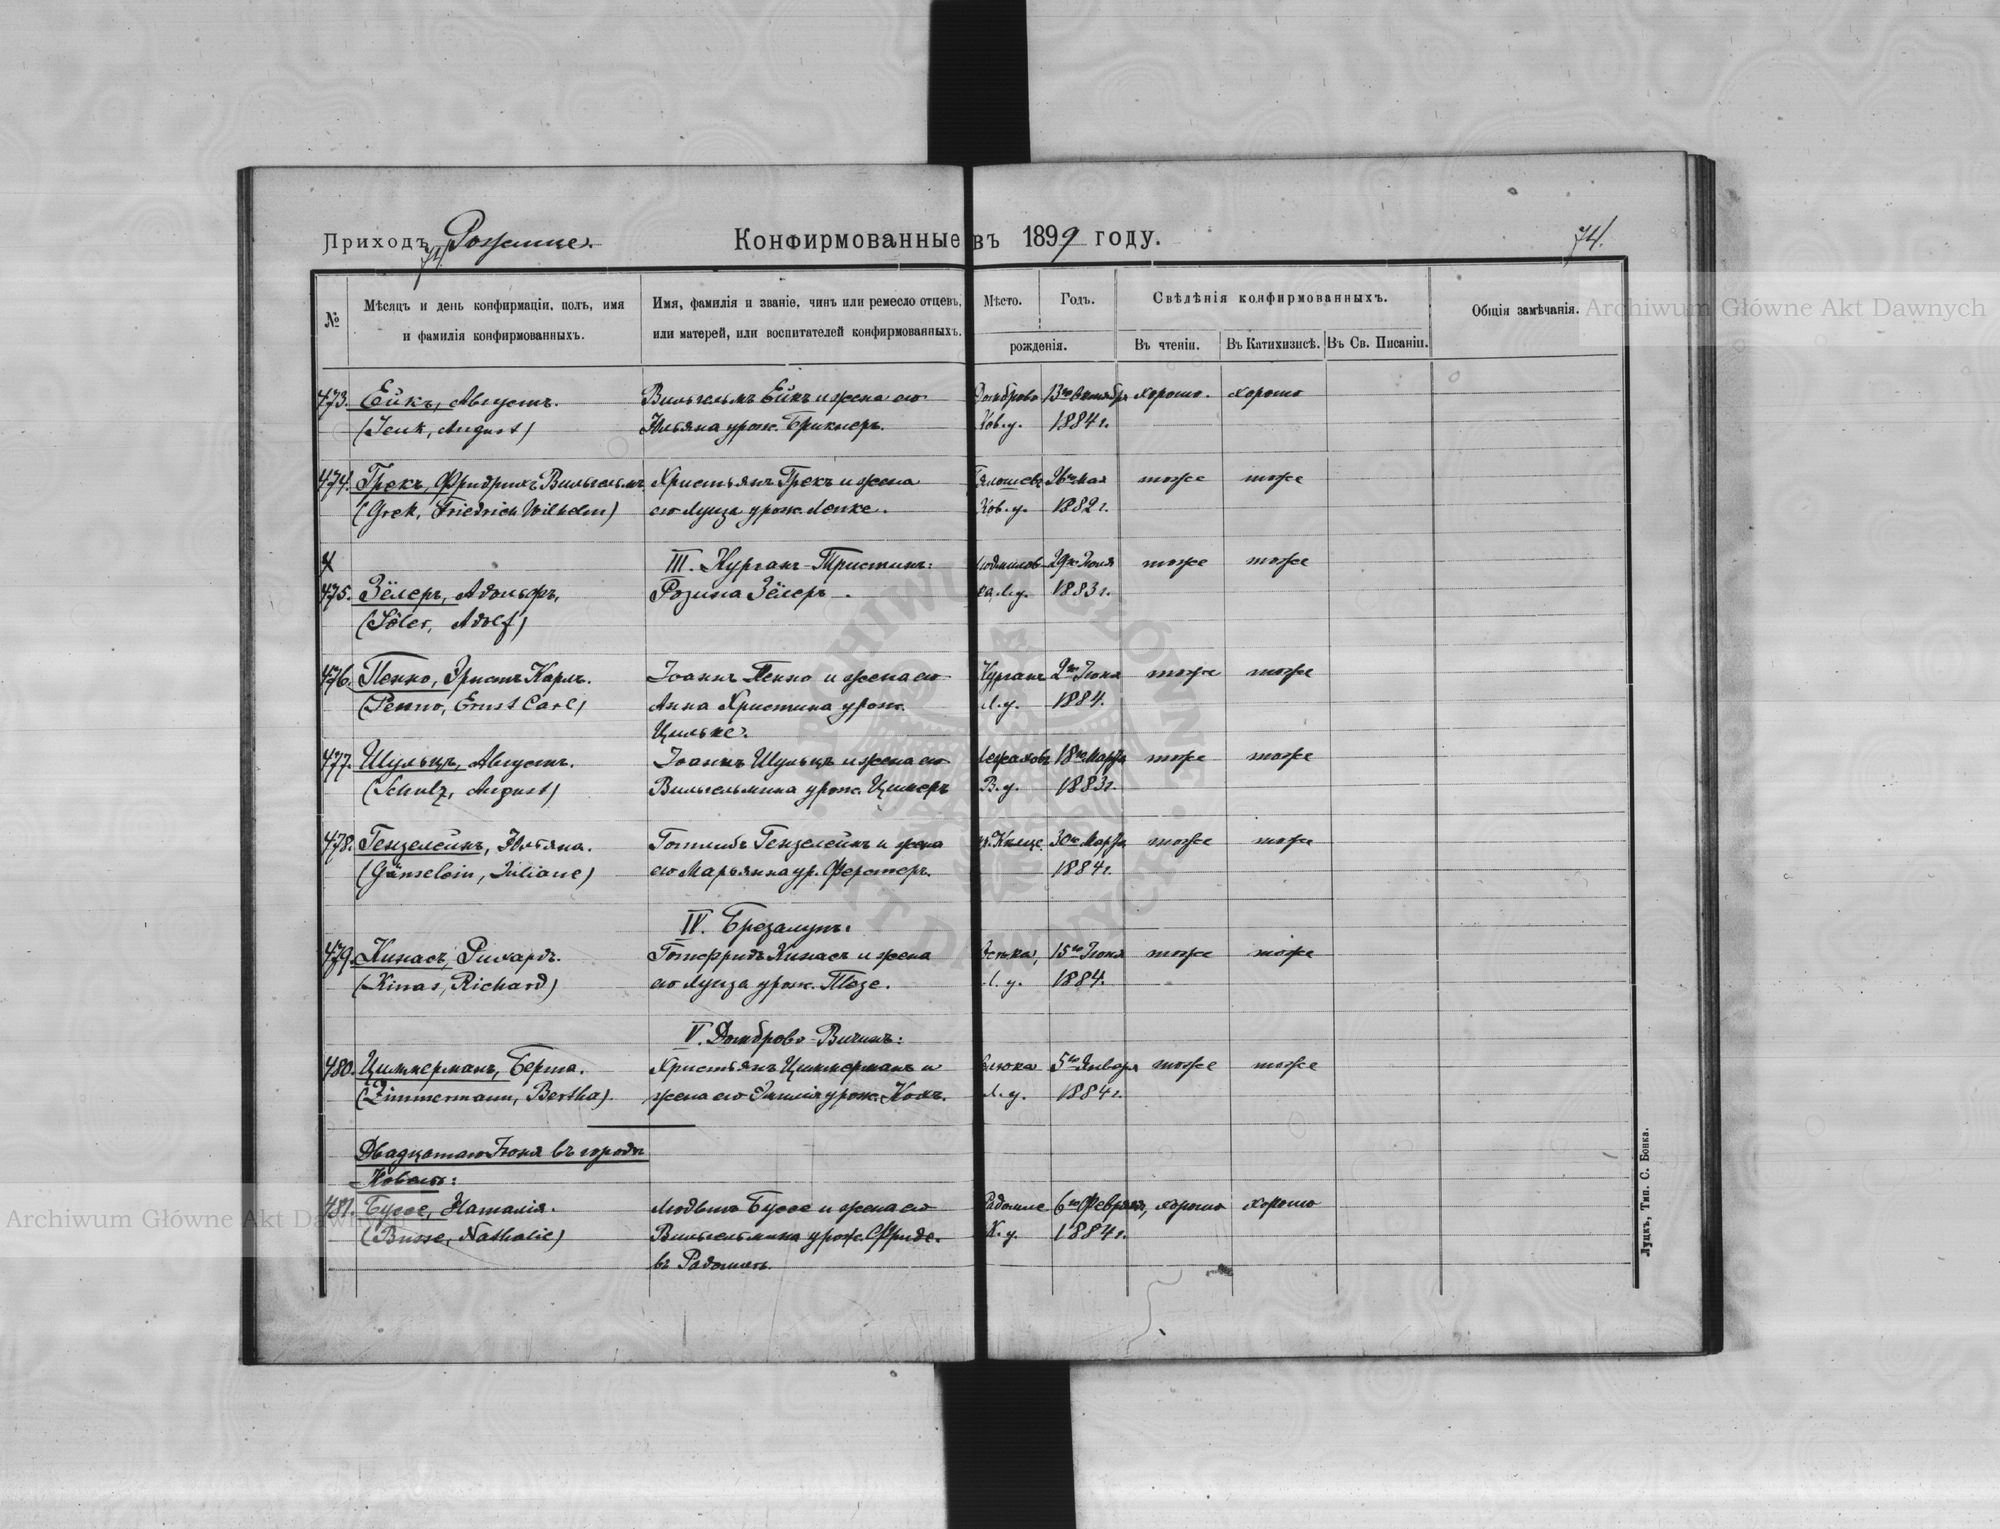 Приходъ Рожище.
74.
Конфирмованные въ 1899 году.
74.
№
Мѣсяцъ и день конфирмаціи, полъ, имя
и фамилія конфирмованныхъ.
Имя, фамилія и званіе, чинъ или ремесло отцевъ,
или матерей, или воспитателей конфирмованныхъ.
Мѣсто.
Годъ.
рожденія.
Свѣдѣнія конфирмованныхъ.
Въ чтеніи.
Въ Катихизисѣ.
Въ Св. Писаніи.
Общія замѣчанія.
473. Ейкъ, Августъ. Вильгельмъ Ейкъ и жена его Домброва 13го Октября хорошо. хорошо
(Jeuk, August) Юльяна урож. Брикнеръ. Ков. у. 1884 г.
474. Грекъ, Фридрихъ Вильгельмъ. Христьянъ Грекъ и жена 26го Мая тоже тоже
(Grek, Friedrich Wilhelm) его Луиза урож. Лепке. Ков. у. 1882 г.
III. Курганъ-Тристинъ: 29го Іюля тоже тоже
475. Зёлеръ, Адольфъ, Розина Зёлеръ. ка Л. у. 1883 г.
(Söler, Adolf)
476. Пенно, Эрнстъ Карлъ. Іоаннъ Пенно и жена его Курганъ 2го Іюня тоже тоже
(Penno, Ernst Carl) Анна Христина урож. Л. у. 1884.
Цильке.
477. Шульцъ, Августъ. Іоаннъ Шульцъ и жена его 18го Марта тоже тоже
(Schulz, August) Вильгельмина урож. Цимеръ В. у. 1883 г.
478. Гензелейнъ, Юльяна. Готлибъ Гензелейнъ и жена 30го Марта тоже тоже
(Gänselein, Juliane) его Марьянна ур. Ферстеръ. 1884 г.
IV. Брезалупъ:
479. Кинасъ, Рихардъ. Готфридъ Кинасъ и жена 15го Іюня тоже тоже
(Kinas, Richard) его Луиза урож. Тозе. Л. у. 1884.
V. Домброва-Вичинъ:
480. Циммерманъ, Берта. Христьянъ Циммерманъ и 5го Января тоже тоже
(Zimmermann, Bertha) жена его Эмилія урож. Кохъ. Л. у. 1884 г.
Двадцатаго Іюня въ городѣ
Ковелѣ:
481. Буссе, Наталія. Людвигъ Буссе и жена его Радомле 6го Февраля, хорошо хорошо
(Busse, Nathalie) Вильгельмина урож. Фриде. К. у. 1884 г.
въ Радомлѣ
Луцкъ, Тип. С. Бонка.
Archiwum Główne Akt Dawnych
Archiwum Główne Akt Dawnych
ARCHIWUM GŁÓWNE AKT DAWNYCH